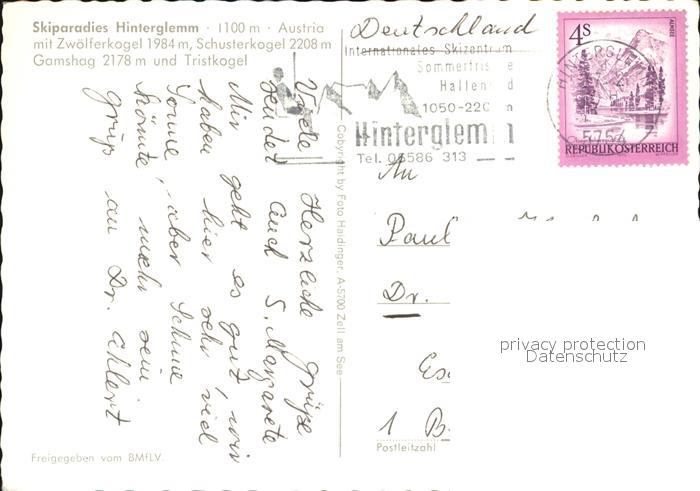 Skiparadies Hinterglemm · 1100 m · Austria
mit Zwölferkogel 1984 m, Schusterkogel 2208 m
Gamshag 2178 m und Tristkogel
Viele Herzliche Grüße
sendet Euch S. Margarete
Mir geht es gut, wir
haben hier sehr viel
Sonne, aber Schnee
könnte mehr sein
gruß an Dr. Ahlert
Freigegeben vom BMfLV.
Copyright by Foto Haidinger, A-5700 Zell am See
Deutschland
Internationales Skizentrum
Sommerfrische
Hallenbad
1050-220 m
Hinterglemm
Tel. 06586 313
HINTERGLEMM
4S
ALMSEE
REPUBLIK ÖSTERREICH
An
Paul
Dr.
Es
1 B
Postleitzahl
privacy protection
Datenschutz